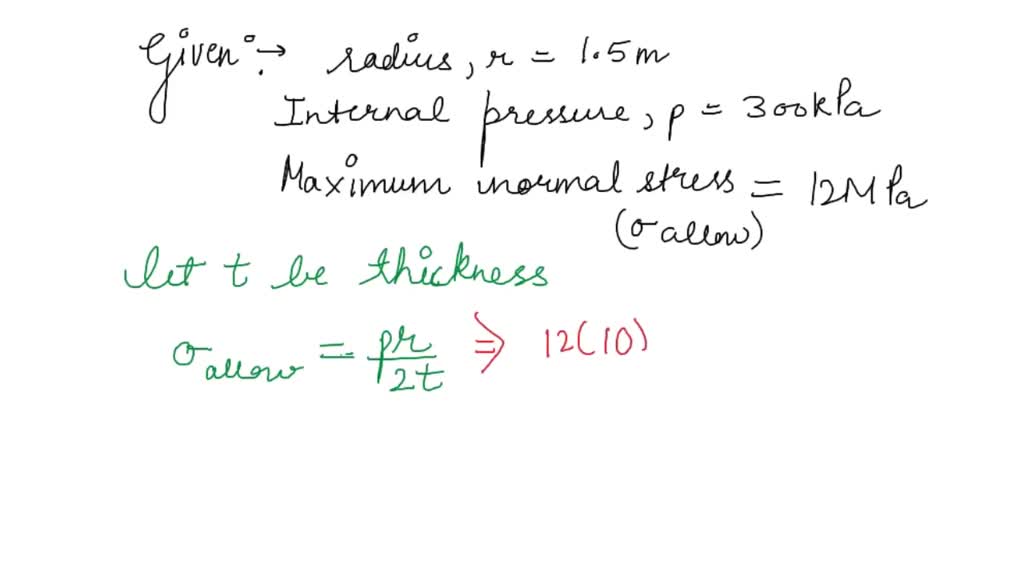 Given :→ radius, r = 1.5m
Internal pressure, p = 300kPa
Maximum normal stress = 12MPa
(σ allow)
let t be thickness
σ allow = pr/2t ⇒ 12(10)